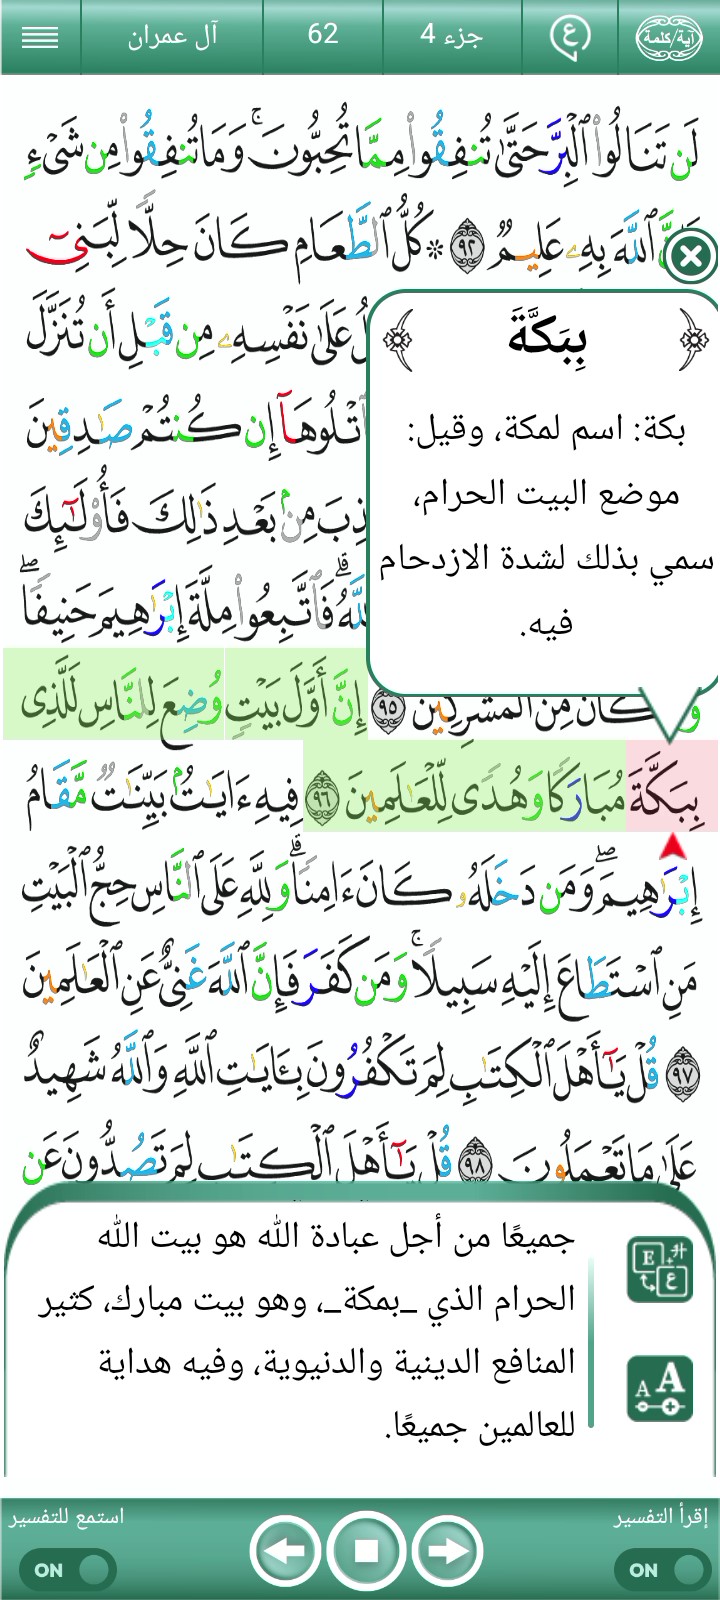 آية/كلمة
ع
جزء 4
62
آل عمران
لَن تَنَالُوا۟ ٱلْبِرَّ حَتَّىٰ تُنفِقُوا۟ مِمَّا تُحِبُّونَ ۚ وَمَا تُنفِقُوا۟ مِن شَىْءٍ
ٱللَّهَ بِهِۦ عَلِيمٌ ٩٢ * كُلُّ ٱلطَّعَامِ كَانَ حِلًّا لِّبَنِىٓ
عَلَىٰ نَفْسِهِۦ مِن قَبْلِ أَن تُنَزَّلَ
إِن كُنتُمْ صَـٰدِقِينَ
مِنۢ بَعْدِ ذَٰلِكَ فَأُو۟لَـٰٓئِكَ
فَٱتَّبِعُوا۟ مِلَّةَ إِبْرَٰهِيمَ حَنِيفًا ۖ
بِبَكَّةَ
بكة: اسم لمكة، وقيل:
موضع البيت الحرام،
سمي بذلك لشدة الازدحام
فيه.
كَانَ مِنَ ٱلْمُشْرِكِينَ ٩٥ إِنَّ أَوَّلَ بَيْتٍ وُضِعَ لِلنَّاسِ لَلَّذِى
بِبَكَّةَ مُبَارَكًا وَهُدًى لِّلْعَـٰلَمِينَ ٩٦ فِيهِ ءَايَـٰتٌۢ بَيِّنَـٰتٌ مَّقَامُ
إِبْرَٰهِيمَ ۖ وَمَن دَخَلَهُۥ كَانَ ءَامِنًا ۗ وَلِلَّهِ عَلَى ٱلنَّاسِ حِجُّ ٱلْبَيْتِ
مَنِ ٱسْتَطَاعَ إِلَيْهِ سَبِيلًا ۚ وَمَن كَفَرَ فَإِنَّ ٱللَّهَ غَنِىٌّ عَنِ ٱلْعَـٰلَمِينَ
٩٧ قُلْ يَـٰٓأَهْلَ ٱلْكِتَـٰبِ لِمَ تَكْفُرُونَ بِـَٔايَـٰتِ ٱللَّهِ وَٱللَّهُ شَهِيدٌ
عَلَىٰ مَا تَعْمَلُونَ ٩٨ قُلْ يَـٰٓأَهْلَ ٱلْكِتَـٰبِ لِمَ تَصُدُّونَ عَن
جميعًا من أجل عبادة الله هو بيت الله
الحرام الذي _بمكة_، وهو بيت مبارك، كثير
المنافع الدينية والدنيوية، وفيه هداية
للعالمين جميعًا.
إقرأ التفسير
استمع للتفسير
ON
ON